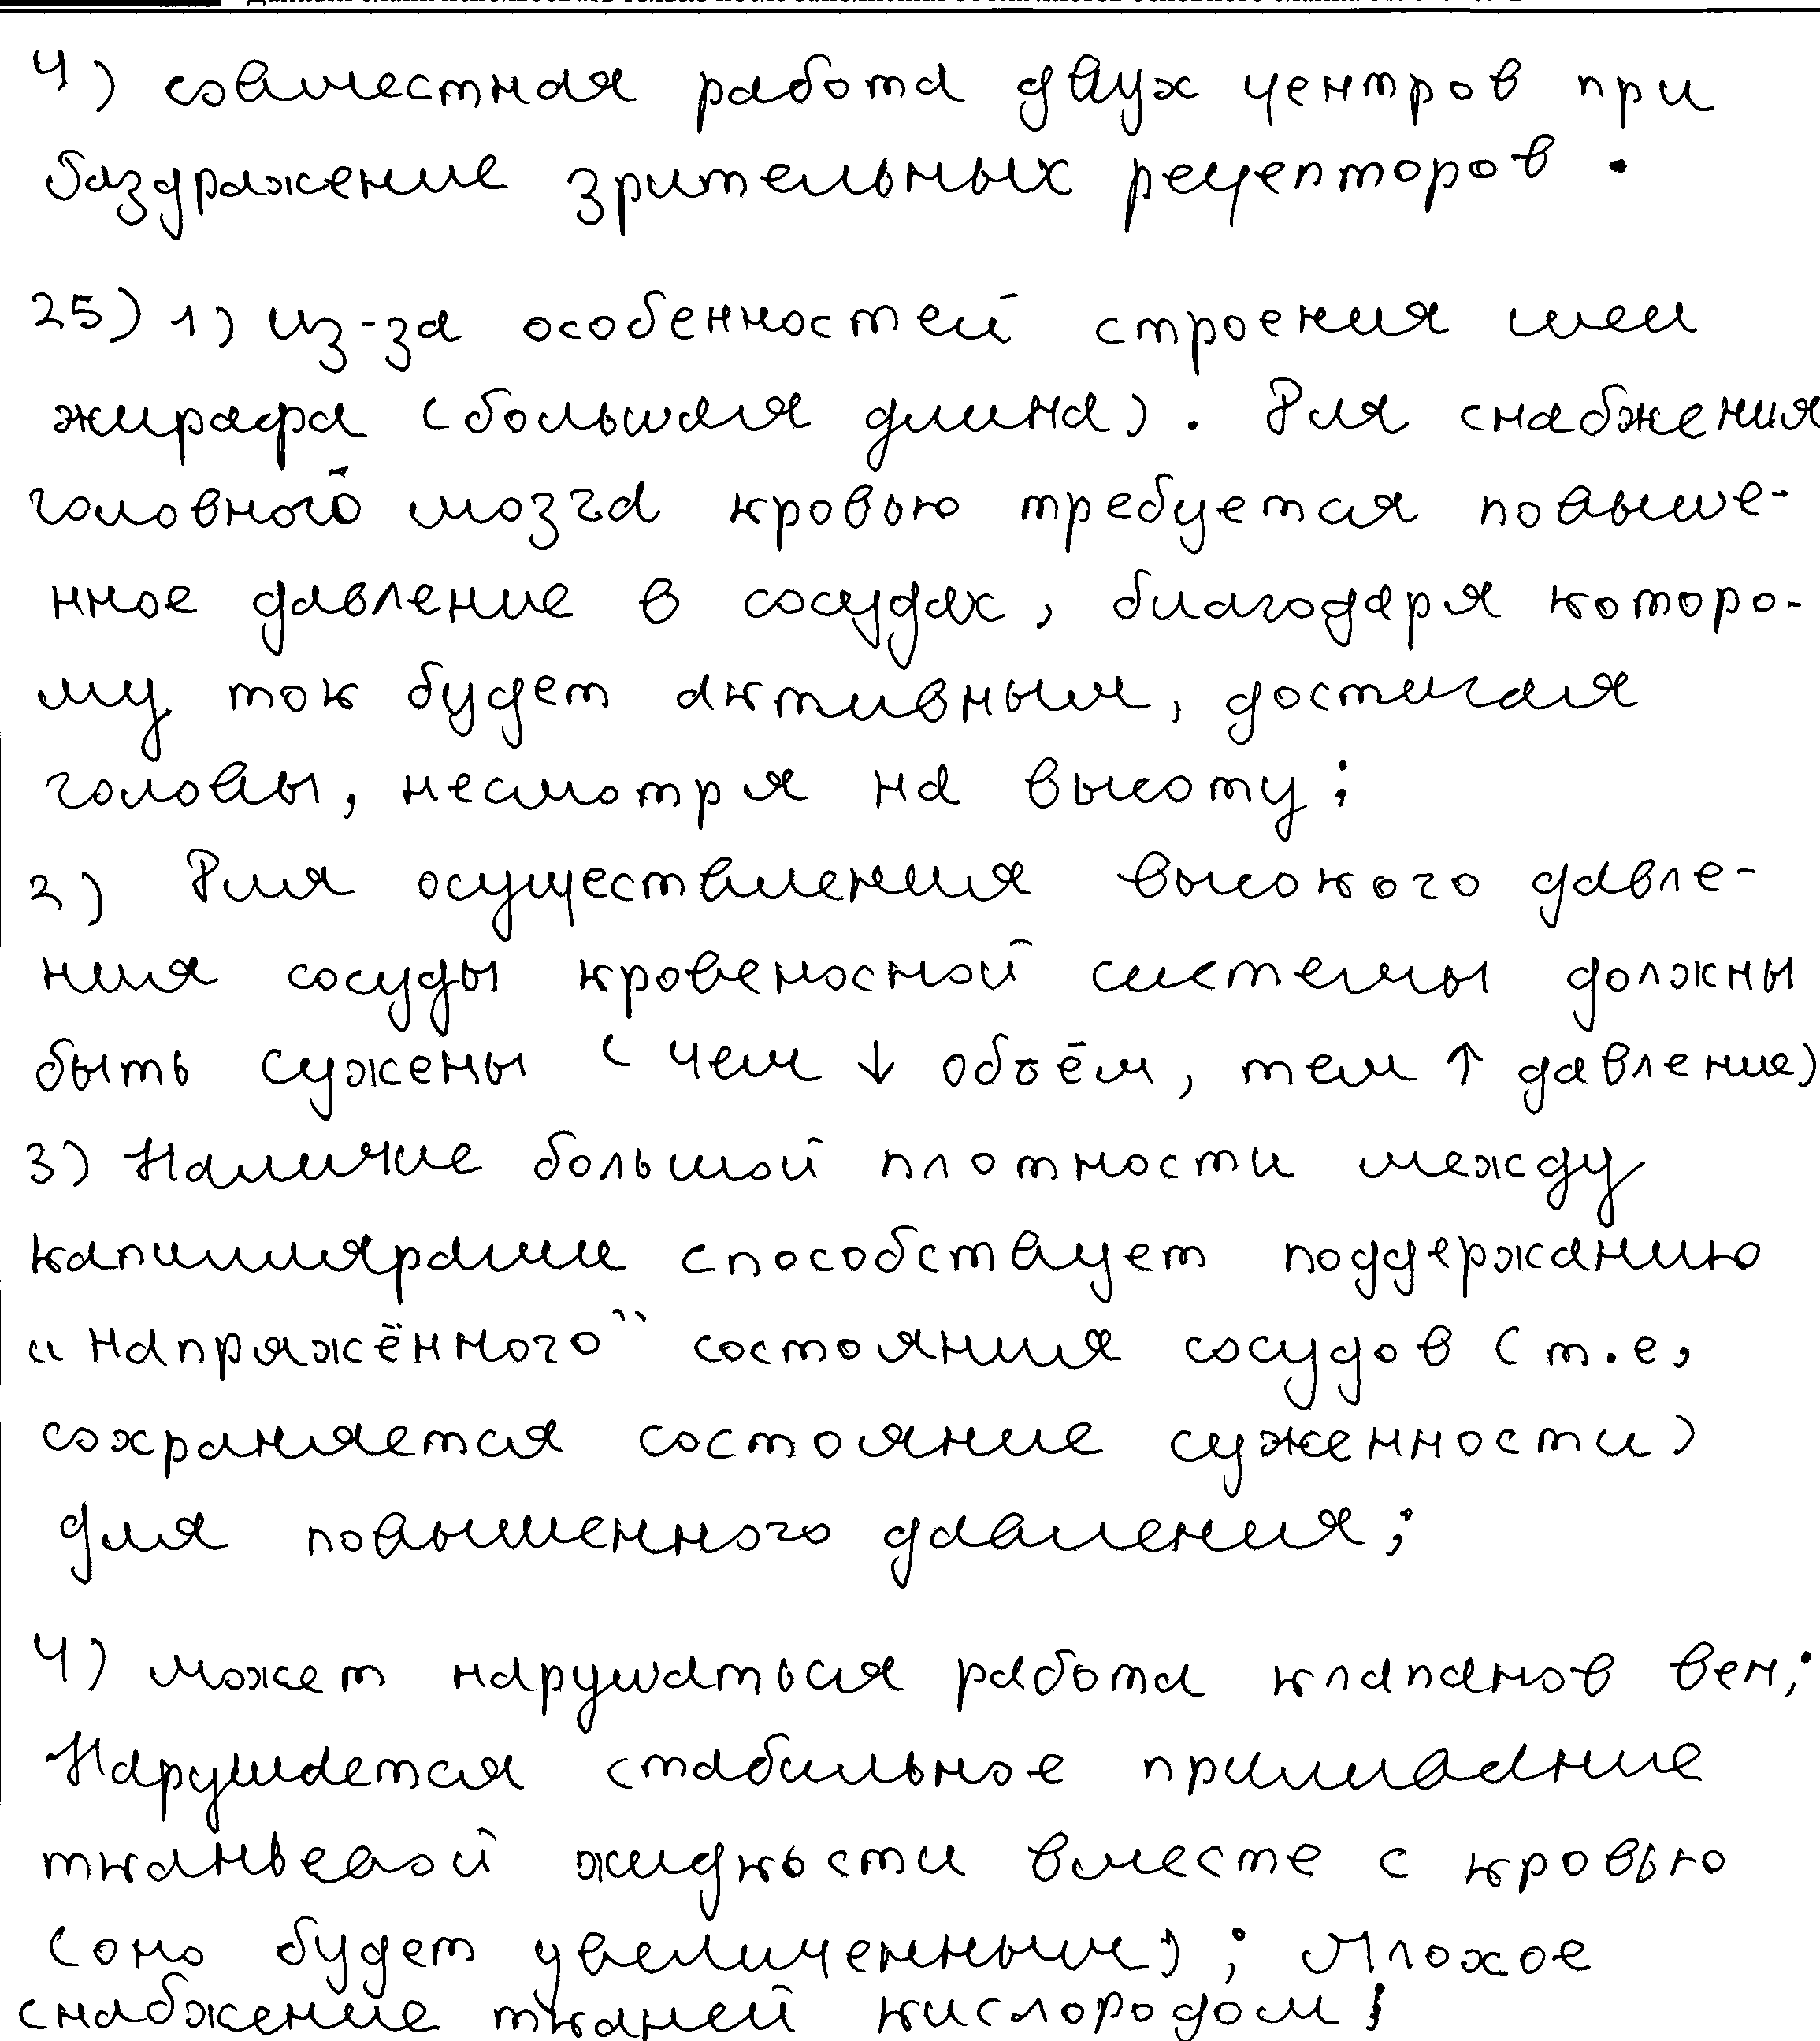 4) совместная работа двух центров при
раздражение зрительных рецепторов.
25) 1) Из-за особенностей строения шеи
жирафа (большая длина). Для снабжения
головного мозга кровью требуется повыше-
нное давление в сосудах, благодаря которо-
му ток будет активным, достигая
головы, несмотря на высоту;
2) Для осуществления высокого давле-
ния сосуды кровеносной системы должны
быть сужены (чем ↓ объём, тем ↑ давление)
3) Наличие большой плотности между
капиллярами способствует поддержанию
"напряжённого" состояния сосудов (т.е,
сохраняется состояние суженности)
для повышенного давления;
4) может нарушаться работа клапанов вен;
Нарушается стабильное приливание
тканьевой жидкости вместе с кровью
(оно будет увеличенным); Плохое
снабжение тканей кислородом;